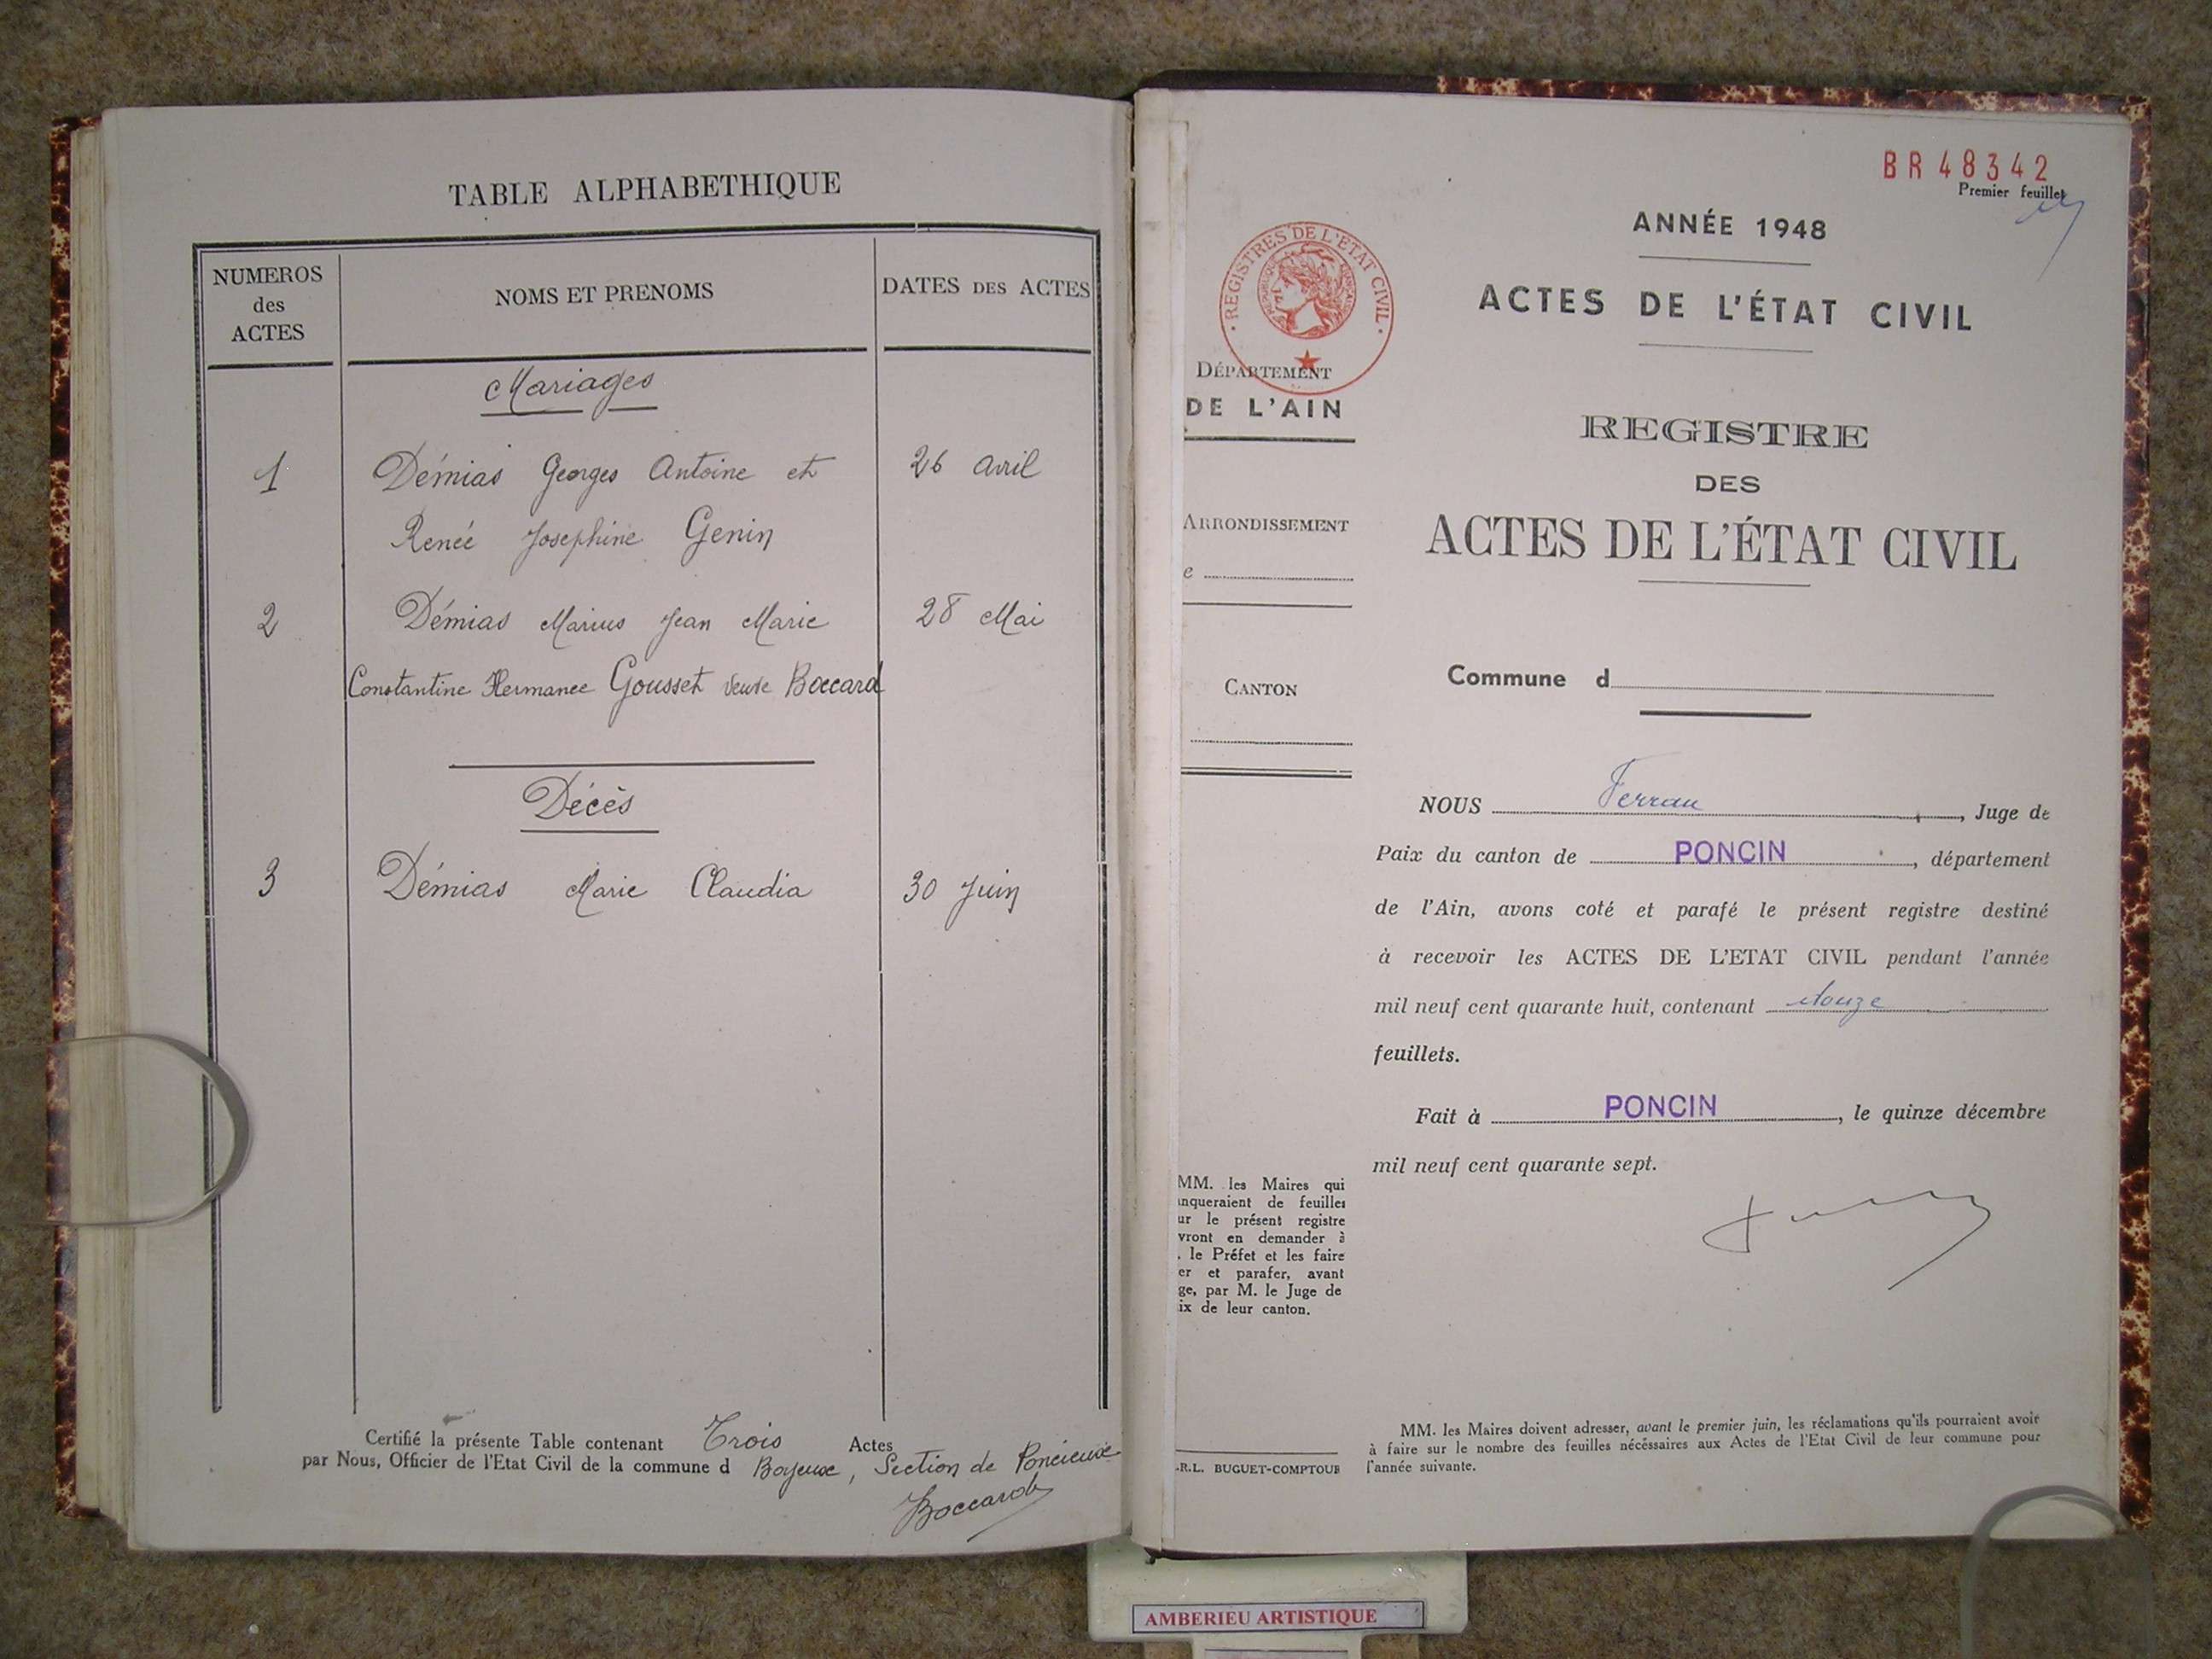 TABLE ALPHABETHIQUE
NUMEROS
des
ACTES
NOMS ET PRENOMS
DATES DES ACTES
Mariages
1 Démias Georges Antoine et 26 Avril
Renée Josephine Genin
2 Démias Marius Jean Marie 28 Mai
Constantine Hermance Gousset veuve Boccard
Décès
3 Démias Marie Claudia 30 Juin
Certifié la présente Table contenant Trois Actes
par Nous, Officier de l'Etat Civil de la commune d Boyeux, Section de Poncieux
Boccard
BR 48342
Premier feuillet
ANNÉE 1948
ACTES DE L'ÉTAT CIVIL
· REGISTRES DE L'ETAT CIVIL ·
REPUBLIQUE FRANÇAISE
DÉPARTEMENT
DE L'AIN
REGISTRE
DES
ACTES DE L'ÉTAT CIVIL
ARRONDISSEMENT
e
Commune d
CANTON
NOUS , Juge de
Paix du canton de PONCIN, département
de l'Ain, avons coté et parafé le présent registre destiné
à recevoir les ACTES DE L'ETAT CIVIL pendant l'année
mil neuf cent quarante huit, contenant douze
feuillets.
Fait à PONCIN, le quinze décembre
mil neuf cent quarante sept.
MM. les Maires qui
nqueraient de feuilles
ur le présent registre
vront en demander à
. le Préfet et les faire
er et parafer, avant
ge, par M. le Juge de
ix de leur canton.
MM. les Maires doivent adresser, avant le premier juin, les réclamations qu'ils pourraient avoir
à faire sur le nombre des feuilles nécéssaires aux Actes de l'Etat Civil de leur commune pour
l'année suivante.
.R.L. BUGUET-COMPTOUR
AMBERIEU ARTISTIQUE